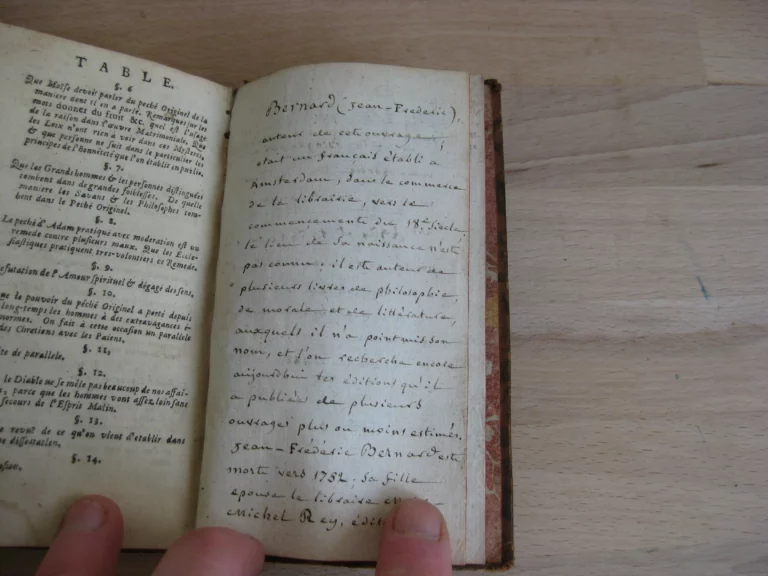 TABLE.
§. 6
Que Moïse devoit parler du peché Originel de la
maniere dont il en a parlé. Remarques sur les
mots donnez du fruit &c. quel est l'usage
de la raison dans l'œuvre Matrimoniale. Que
les Loix n'ont rien a voir dans ces Mysteres,
& que personne ne suit dans le particulier les
principes de l'honnêteté que l'on établit en public.
§. 7.
Que les Grands hommes & les personnes distinguées
tombent dans de grandes foiblesses. De quelle
maniere les Savans & les Philosophes tom-
bent dans le Peché Originel.
§. 8.
Le peché d'Adam pratiqué avec moderation est un
remede contre plusieurs maux. Que les Eccle-
siastiques pratiquent tres-volontiers ce Remede.
§. 9.
efutation de l'Amour spirituel & dégagé des sens.
§. 10.
ue le pouvoir du péché Originel a porté depuis
long-temps les hommes à des extravagances é-
normes. On fait à cette occasion un parallele
des Chretiens avec les Païens.
§. 11.
ite de parallele.
§. 12.
le Diable ne se mêle pas beaucoup de nos affai-
, parce que les hommes vont assez loin sans
secours de l'Esprit Malin.
§. 13.
e revuë de ce qu'on vient d'etablir dans
e dissertation.
§. 14.
usion.
Bernard (Jean-Frédéric),
auteur de cet ouvrage,
etait un français établi a
Amsterdam, dans le commerce
de la librairie, vers le
commencement du 18.e Siecle.
le lieu de sa naissance n'est
pas connu; il est auteur de
plusieurs livres de philosophie,
de morale et de littérature,
auxquels il n'a point mis son
nom, et l'on recherche encore
aujourdhui les éditions qu'il
a publiées de plusieurs
ouvrages plus ou moins estimés.
Jean-Frédéric Bernard est
mort vers 1752; sa fille
epousa le libraire
Michel Rey, édit